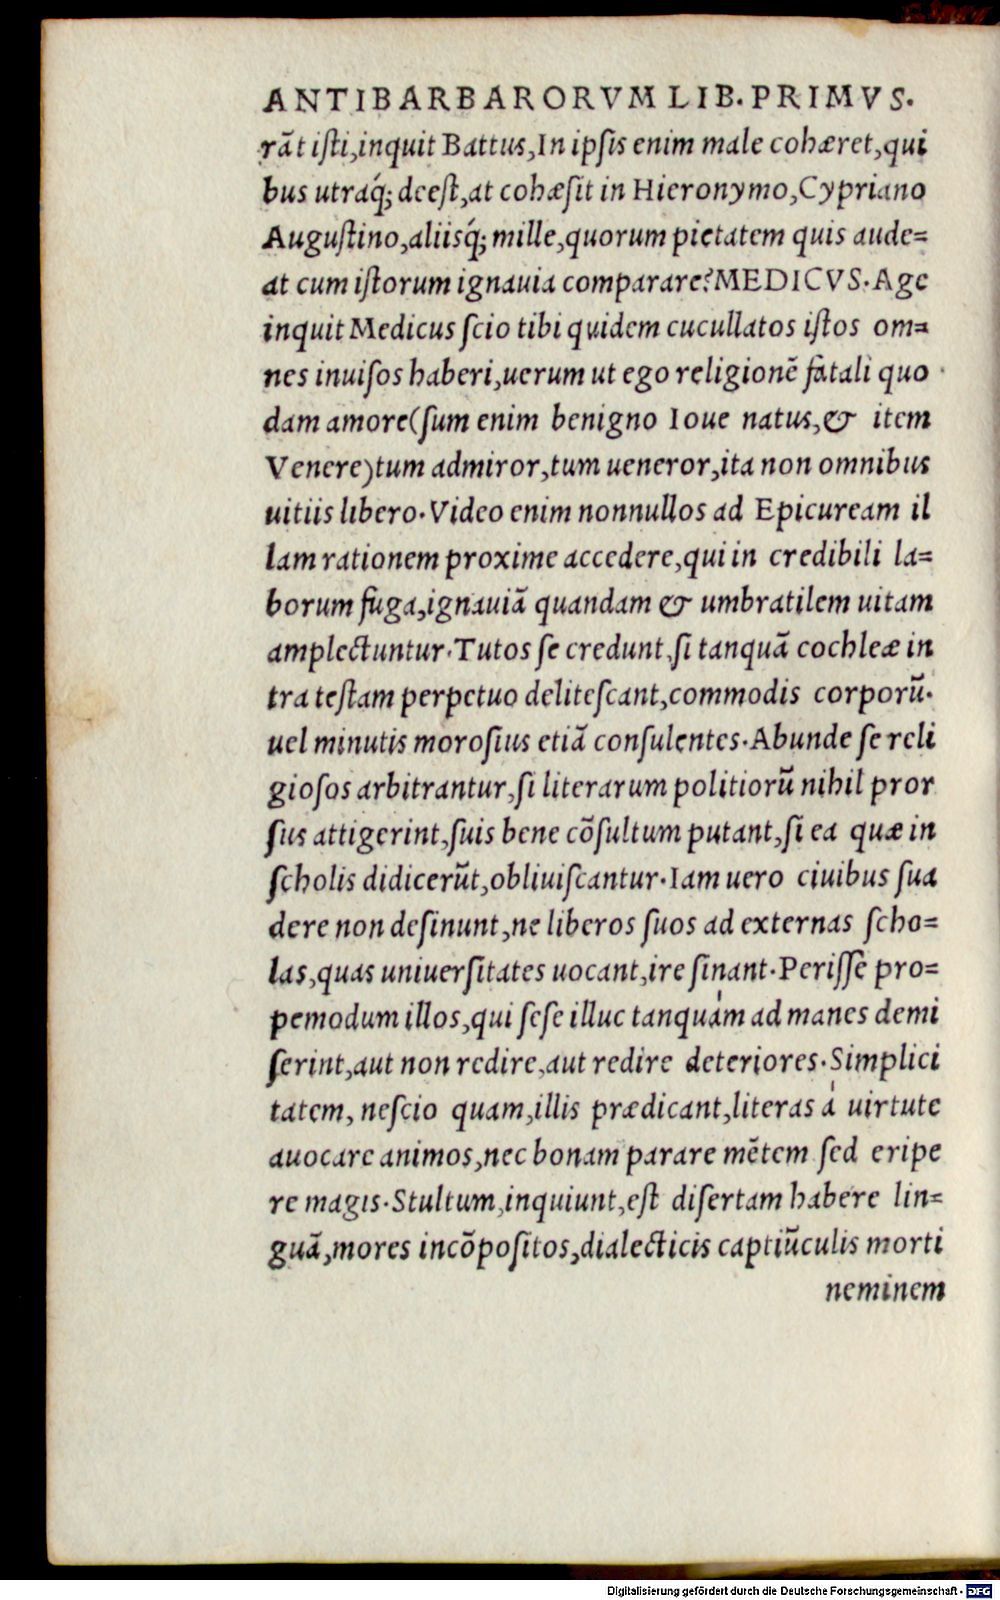 ANTIBARBARORVM LIB. PRIMVS.
rãt iſti, inquit Battus, In ipſis enim male cohæret, qui
bus utraq́; deeſt, at cohæſit in Hieronymo, Cypriano
Auguſtino, aliisq́; mille, quorum pietatem quis aude=
at cum iſtorum ignauia comparare? MEDICVS. Age
inquit Medicus ſcio tibi quidem cucullatos iſtos om=
nes inuiſos haberi, uerum ut ego religionẽ fatali quo
dam amore (ſum enim benigno Ioue natus, & item
Venere) tum admiror, tum ueneror, ita non omnibus
uitiis libero. Video enim nonnullos ad Epicuream il
lam rationem proxime accedere, qui in credibili la=
borum fuga, ignauiã quandam & umbratilem uitam
amplectuntur. Tutos ſe credunt, ſi tanquã cochleæ in
tra teſtam perpetuo deliteſcant, commodis corporũ.
uel minutis moroſius etiã conſulentes. Abunde ſe reli
gioſos arbitrantur, ſi literarum politiorũ nihil pror
ſus attigerint, ſuis bene cõſultum putant, ſi ea quæ in
ſcholis didicerũt, obliuiſcantur. Iam uero ciuibus ſua
dere non deſinunt, ne liberos ſuos ad externas ſcho=
las, quas uniuerſitates uocant, ire ſinant. Periſſe pro=
pemodum illos, qui ſeſe illuc tanquám ad manes demi
ſerint, aut non redire, aut redire deteriores. Simplici
tatem, neſcio quam, illis prædicant, literas á uirtute
auocare animos, nec bonam parare mẽtem ſed eripe
re magis. Stultum, inquiunt, eſt diſertam habere lin=
guã, mores incõpoſitos, dialecticis captiũculis morti
neminem
Digitalisierung gefördert durch die Deutsche Forschungsgemeinschaft - DFG